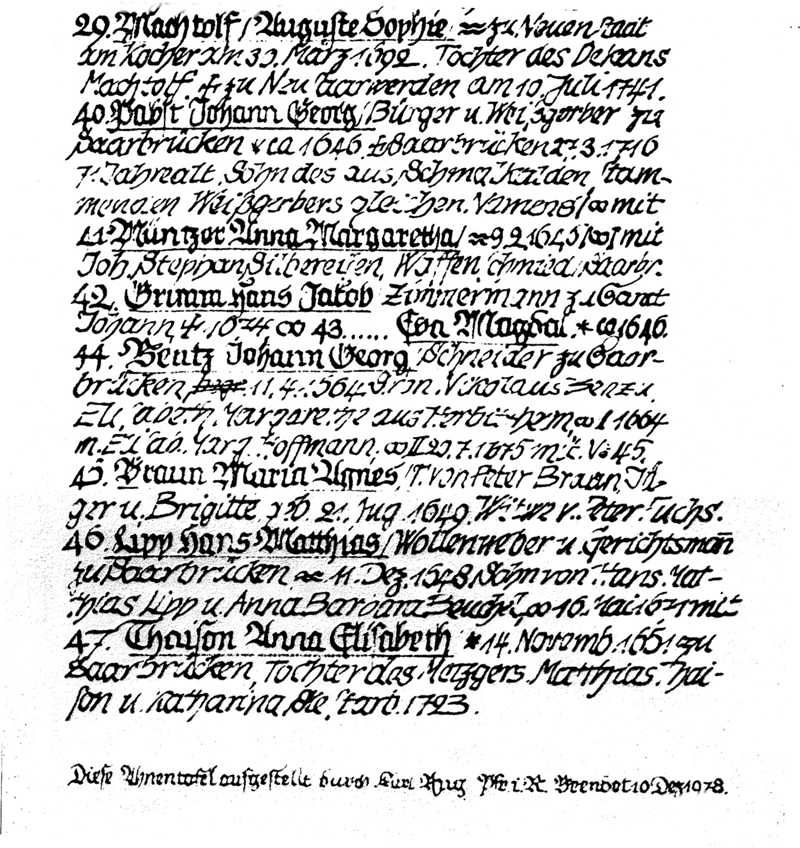 29. Machtolf, Auguste Sophie, ≈ zu Neuenstaat
am Kocher am 30. März 1692. Tochter des Dekans
Machtolf. + zu Neu Saarwerden am 10. Juli 1741.
40. Pabst Johann Georg, Bürger u. Weißgerber zu
Saarbrücken * ca 1646. + Saarbrücken 27.3.1716
7. Jahre alt, Sohn des aus Schmalkalden stam-
menden Weißgerbers gleichen Namens, ∞ mit
41. Müntzer Anna Margaretha, ≈ 9.2.1645, ∞ I mit
Joh. Stephan Silbereisen, Waffenschmied, Saarbr.
42. Grimm Hans Jakob Zimmermann zu Sanct
Johann, + 1674 ∞ 43...... Eva Magdal. * ∞ 1646.
44. Bentz Johann Georg, Schneider zu Saar-
brücken, 11.4.1564 Nikolaus
Elisabeth Margarethe aus ∞ I 1664
m. Elisab. Marg. Hoffmann, ∞ II 20.7.1675 mit 45.
45. Braun Maria Agnes, T. von Peter Braun,
ger u. Brigitte, geb 21. Aug 1649. Witwe v. Peter Fuchs.
46 Lipp Hans Matthias, Wollenweber u. Gerichtsmañ
zu Saarbrücken ≈ 11. Dez. 1648, Sohn von Hans Mat-
thias Lipp u. Anna Barbara ∞ 16. Mai 1671 mit
47. Thaison Anna Elisabeth * 14. Novemb. 1651 zu
Saarbrücken, Tochter des Metzgers Matthias Thai-
son u. Katharina, Sie starb 1723.
Diese Ahnentafel aufgestellt durch Karl Aug Pfr. i. R. 10 Dez 1978.